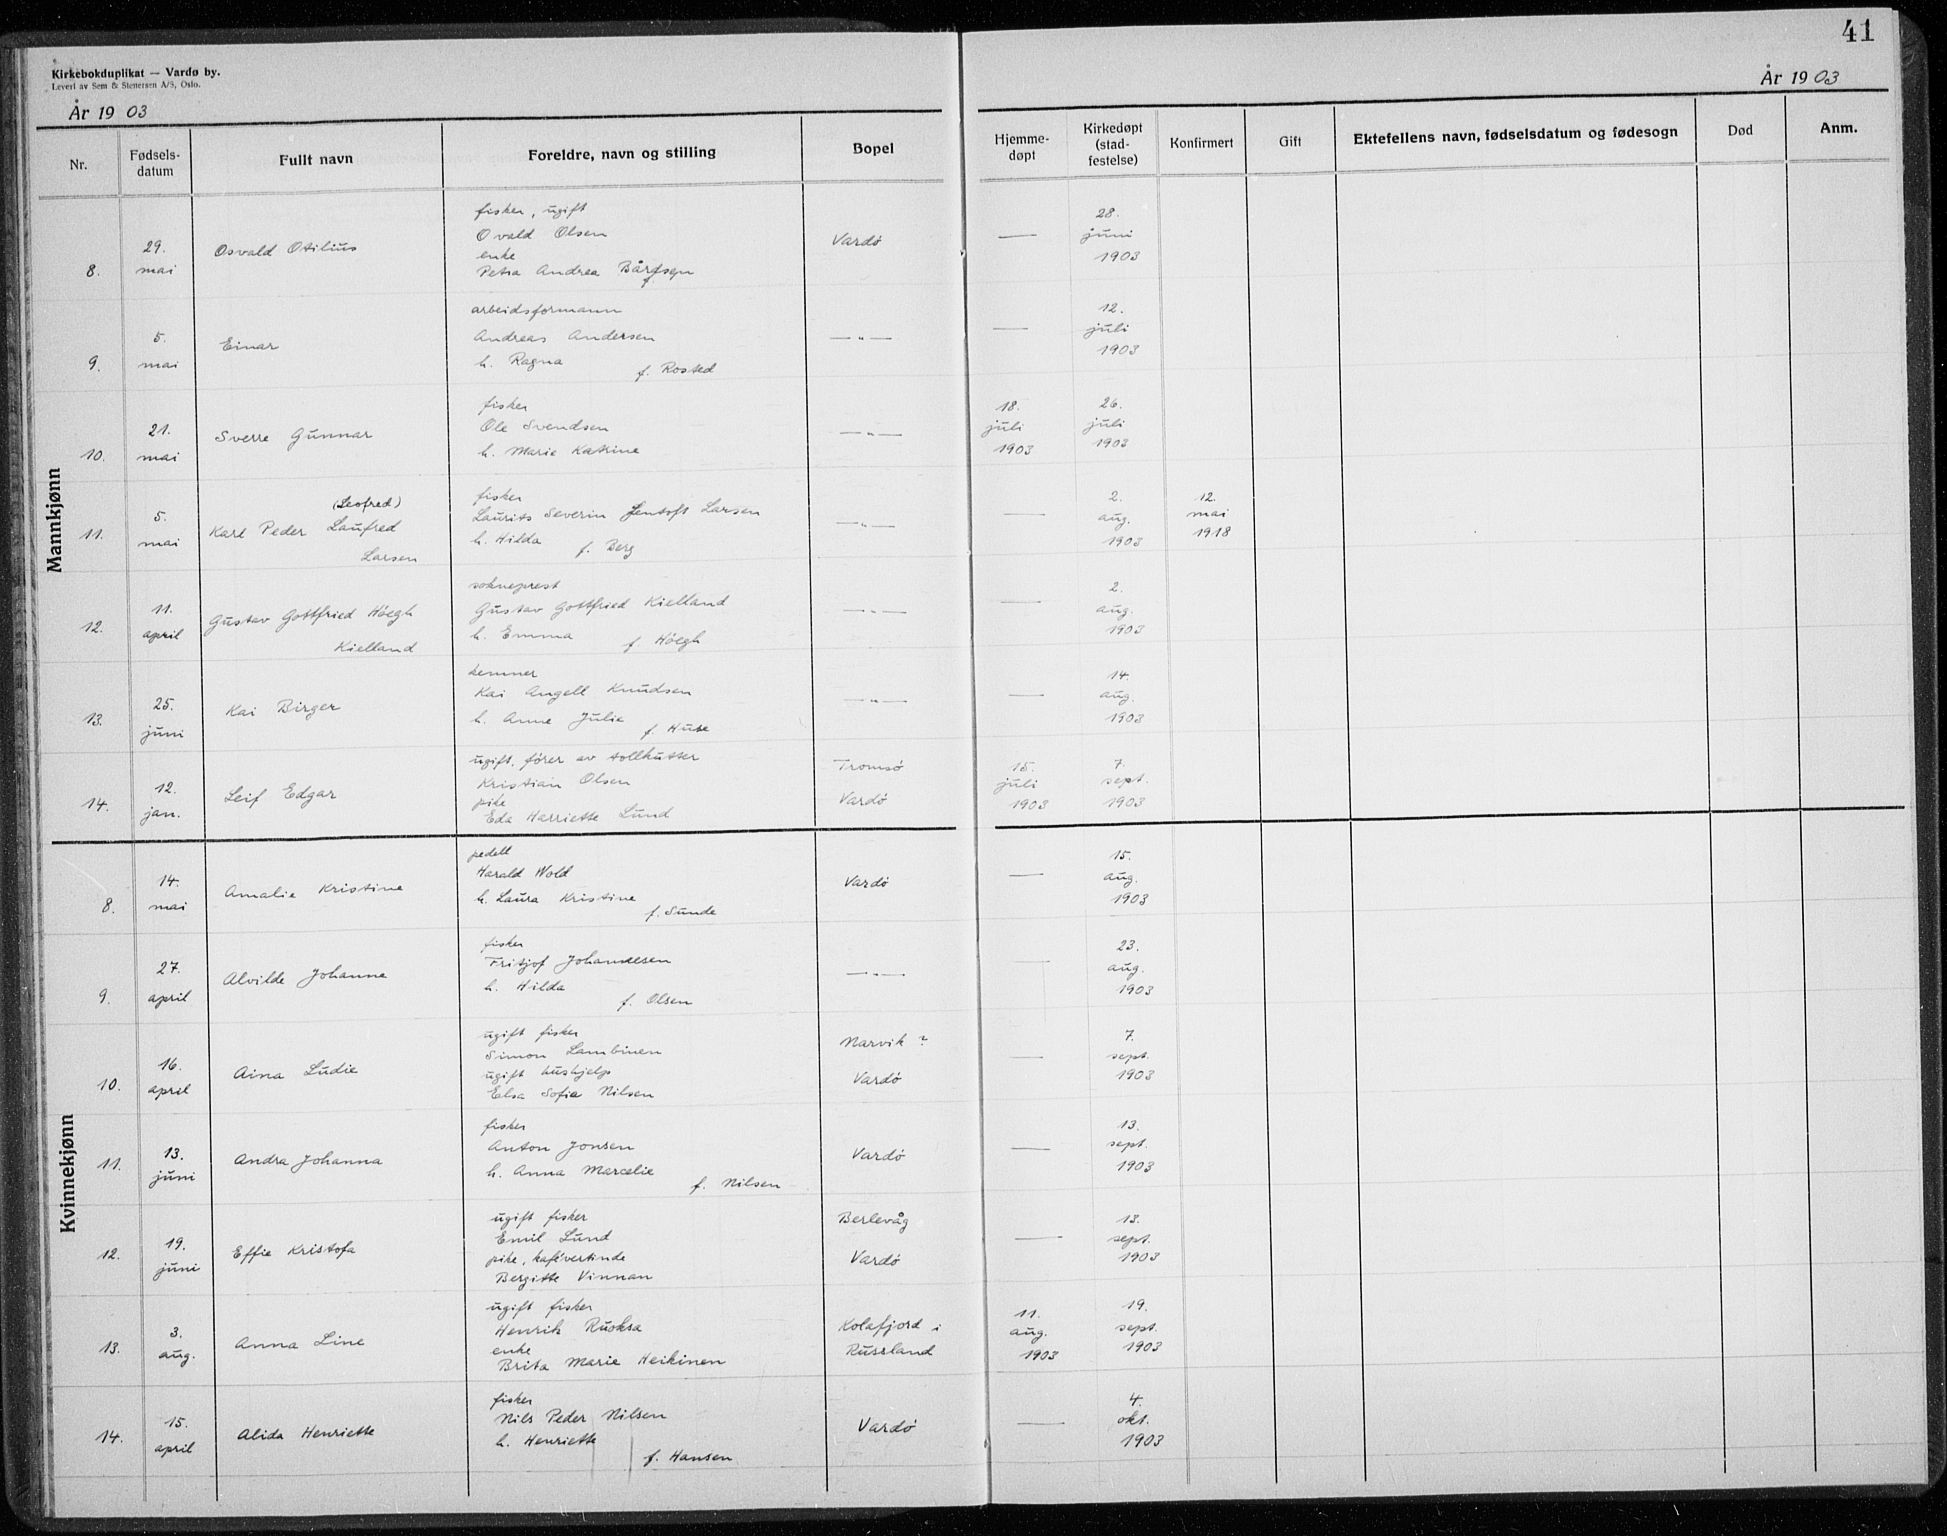 41
Kirkebokduplikat — Vardø by.
Leverl av Sem & Stenersen A/S, Oslo.
År 19 03
År 19 03
Nr.
Fødsels-
datum
Fullt navn
Foreldre, navn og stilling
Bopel
Hjemme-
døpt
Kirkedøpt
(stad-
festelse)
Konfirmert
Gift
Ektefellens navn, fødselsdatum og fødesogn
Død
Anm.
Mannkjønn
8.
29.
mai
Osvald Otilius
fisker, ugift
Ovald Olsen
enke
Petra Andrea
Vardö
—
28.
juni
1903
9.
5.
mai
Einar
arbeidsformann
Andreas Andersen
h. Ragna
f. Rosted
— " —
—
12.
juli
1903
10.
21.
mai
Sverre Gunnar
fisker
Ole Svendsen
h. Marie Katrine
— " —
18.
juli
1903
26.
juli
1903
11.
5.
mai
(Leofred)
Karl Peder Laufred
Larsen
fisker
Laurits Severin Jentoft Larsen
h. Hilda f. Berg
— " —
—
2.
aug.
1903
12.
mai
1918
12.
11.
april
Gustav Gottfried Höegh
Kielland
sokneprest
Gustav Gottfried Kielland
h. Emma f Höegh
— " —
—
2.
aug.
1903
13.
25.
juni
Kai Birger
kemner
Kai Angell Knudsen
h. Anne Julie
f. Huse
— " —
—
14.
aug.
1903
14.
12.
jan.
Leif Edgar
ugift. förer av tollkutter
Kristian Olsen
pike
Eda Harriette Lund
Tromsö
Vardö
15.
juli
1903
7.
sept.
1903
Kvinnekjønn
8.
14.
mai
Amalie Kristine
pedell
Harald Wold
h. Laura Kristine
f. Sunde
Vardö
—
15.
aug.
1903
9.
27.
april
Alvilde Johanne
fisker
Fritjof Johannesen
h. Hilda
f. Olsen
— " —
—
23.
aug.
1903
10.
16.
april
Aina Ludie
ugift fisker
Simon Lambinen
ugift hushjelp
Elsa Sofie Nilsen
Narvik ?
Vardö
—
7.
sept.
1903
11.
13.
juni
Andra Johanna
fisker
Anton Jonsen
h. Anna Marcelie
f. Nilsen
Vardö
—
13.
sept.
1903
12.
19.
juni
Effie Kristofa
ugift fisker
Emil Lund
pike, kafévertinde
Bergitte Vinnan
Berlevåg
Vardö
—
13.
sept.
1903
13.
3.
aug.
Anna Line
ugift fisker
Henrik Ruoksa
enke
Brita Marie Heikinen
Kolafjord i
Russland
11.
aug.
1903
19.
sept.
1903
14.
15.
april
Alida Henriette
fisker
Nils Peder Nilsen
h. Henriette
f. Hansen
Vardö
—
4.
okt.
1903